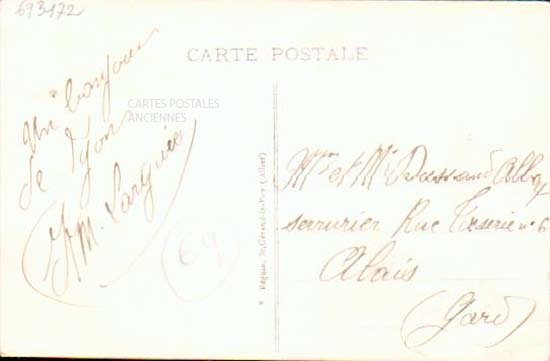 693172
CARTE POSTALE
Un bonjour
de Lyon
CARTES POSTALES
ANCIENNES
M. Larguier
69
* Béguin, St-Gérand-le-Puy (Allier)
Mme et Mr Dussaud
serrurier Rue n° 6
Alais
(Gard)